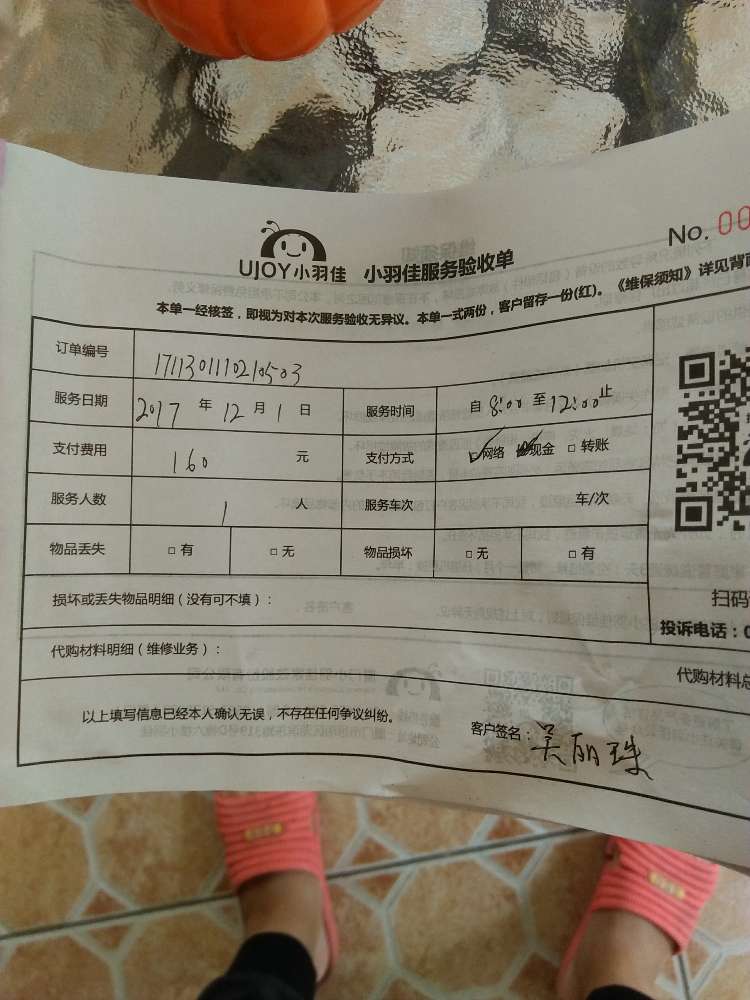 No. 00
UJOY小羽佳 小羽佳服务验收单
本单一经核签，即视为对本次服务验收无异议。本单一式两份，客户留存一份(红)。《维保须知》详见背面
订单编号 1711301110210503
服务日期 2017 年 12 月 1 日 服务时间 自 8:00 至 12:00 止
支付费用 160 元 支付方式 ☑网络 现金 □ 转账
服务人数 1 人 服务车次 车/次
物品丢失 □ 有 □ 无 物品损坏 □ 无 □ 有
损坏或丢失物品明细（没有可不填）：
扫码
投诉电话：0
代购材料明细（维修业务）：
代购材料总
以上填写信息已经本人确认无误，不存在任何争议纠纷。
客户签名：吴丽珠